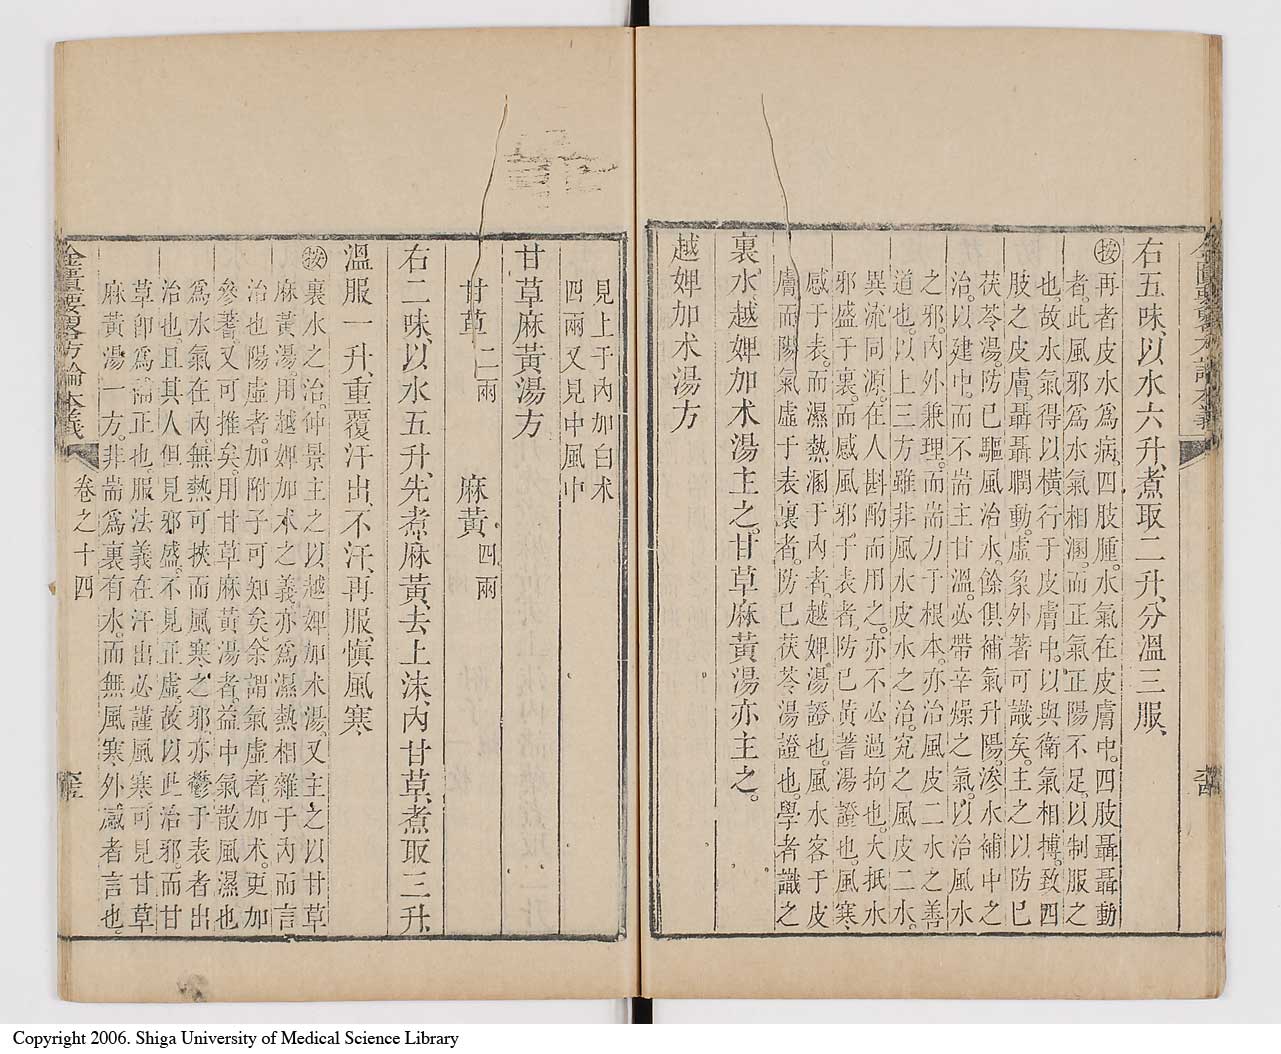 右五味、以水六升、煮取二升、分溫三服、
按再者皮水為病。四肢腫。水氣在皮膚中。四肢聶聶動
者。此風邪為水氣相溷。而正氣正陽不足。以制服之
也。故水氣得以橫行于皮膚中。以與衛氣相搏。致四
肢之皮膚。聶聶瞤動。虛象外著可識矣。主之以防已
茯苓湯。防已驅風治水。餘俱補氣升陽。滲水補中之
治。以建中。而不耑主甘溫。必帶辛燥之氣。以治風水
之邪。內外兼理。而耑力于根本。亦治風皮二水之善
道也。以上三方雖非風水皮水之治。究之風皮二水。
異流同源。在人斟酌而用之。亦不必過拘也。大抵水
邪盛于裏。而感風邪于表者。防已黃蓍湯證也。風寒
感于表。而濕熱溷于內者。越婢湯證也。風水客于皮
膚而陽氣虛于表裏者。防已茯苓湯證也。學者識之
裏水越婢加术湯主之。甘草麻黃湯亦主之。
越婢加术湯方
見上于內加白术
四兩又見中風中
甘草麻黃湯方
甘草 二兩 麻黃 四兩
右二味、以水五升、先煮麻黃、去上沫、內甘草、煮取三升、
溫服一升、重覆汗出、不汗、再服愼風寒
按裏水之治。仲景主之以越婢加术湯。又主之以甘草
麻黃湯用越婢加术之義。亦為濕熱相雜于內而言
治也。陽虛者。加附子可知矣。余謂氣虛者。加术。更加
參蓍。又可推矣。用甘草麻黃湯者。益中氣散風濕也
為水氣在內。無熱可挾而風寒之邪。亦鬱于表者出
治也。且其人但見邪盛。不見正虛。故以此治邪。而甘
草卽為補正也。服法義在汗出必謹風寒可見甘草
麻黃湯一方。非耑為裏有水。而無風寒外感者言也。
金匱要畧方論本義
卷之十四